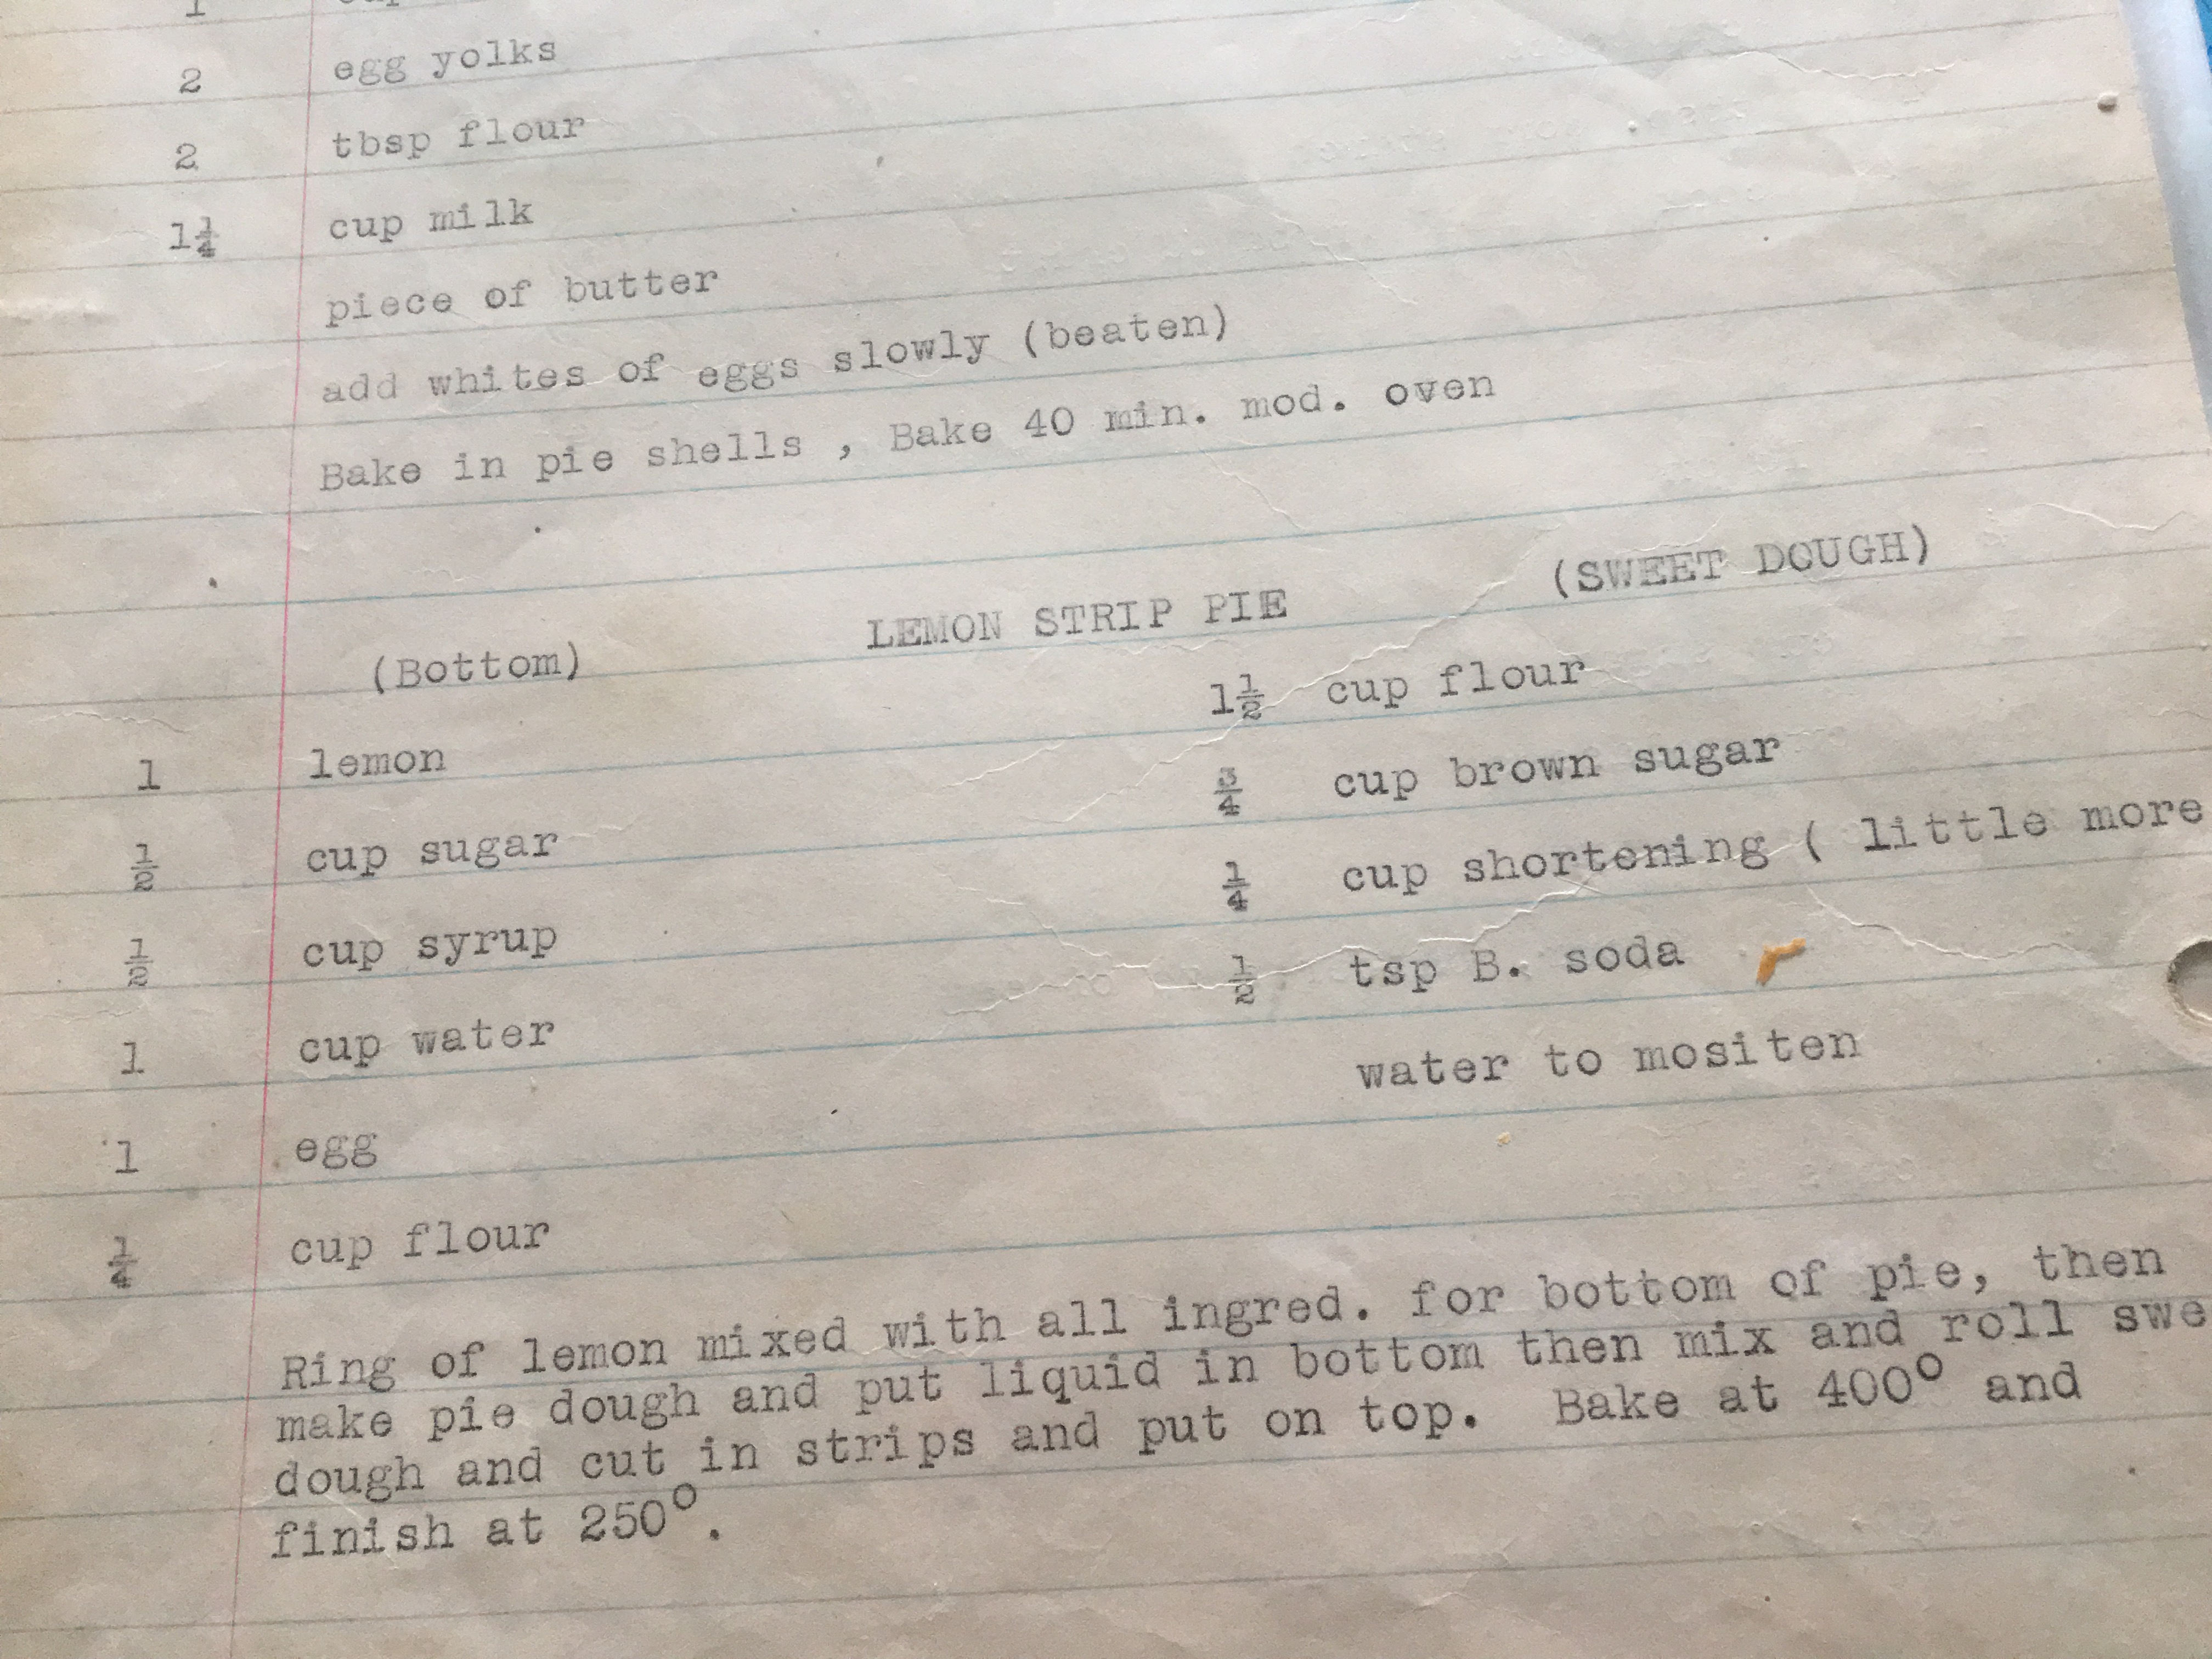 2 egg yolks
2 tbsp flour
1¼ cup milk
piece of butter
add whites of eggs slowly (beaten)
Bake in pie shells , Bake 40 min. mod. oven
LEMON STRIP PIE
(Bottom) (SWEET DOUGH)
1 lemon 1½ cup flour
½ cup sugar ¾ cup brown sugar
½ cup syrup ¼ cup shortening ( little more
1 cup water ½ tsp B. soda
1 egg water to mositen
¼ cup flour
Ring of lemon mixed with all ingred. for bottom of pie, then
make pie dough and put liquid in bottom then mix and roll swe
dough and cut in strips and put on top. Bake at 400° and
finish at 250°.